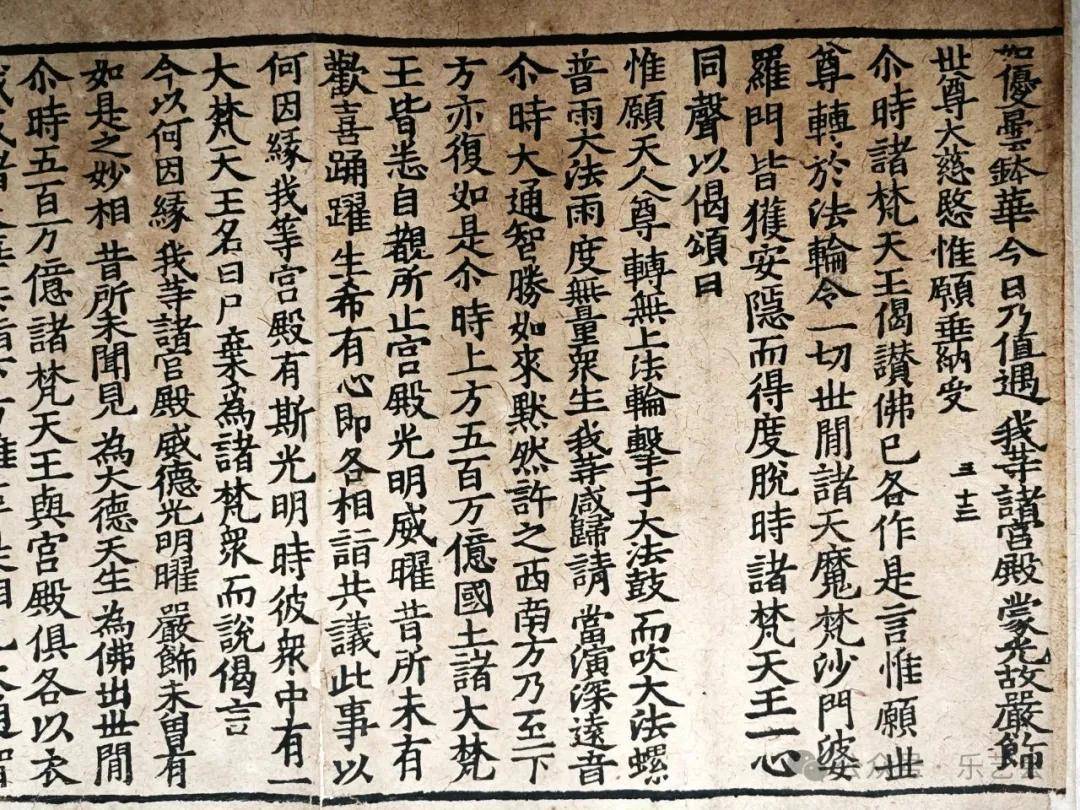 如優曇鉢華今日乃值遇 我等諸宮殿 蒙光故嚴飾
世尊大慈愍惟願垂納受
尒時諸梵天王偈讃佛已各作是言惟願世
尊轉於法輪令一切世閒諸天魔梵沙門婆
羅門皆獲安隱而得度脫時諸梵天王一心
同聲以偈頌曰
惟願天人尊 轉無上法輪 擊于大法鼓 而吹大法螺
普雨大法雨 度無量衆生 我等咸歸請 當演深遠音
尒時大通智勝如來默然許之西南方乃至下
方亦復如是尒時上方五百万億國土諸大梵
王皆悉自覩所止宮殿光明威曜昔所未有
歡喜踊躍生希有心即各相詣共議此事以
何因緣我等宮殿有斯光明時彼衆中有一
大梵天王名曰尸棄為諸梵衆而說偈言
今以何因緣 我等諸宮殿 威德光明曜 嚴飾未曾有
如是之妙相 昔所未聞見 為大德天生 為佛出世閒
尒時五百万億諸梵天王與宮殿俱各以衣